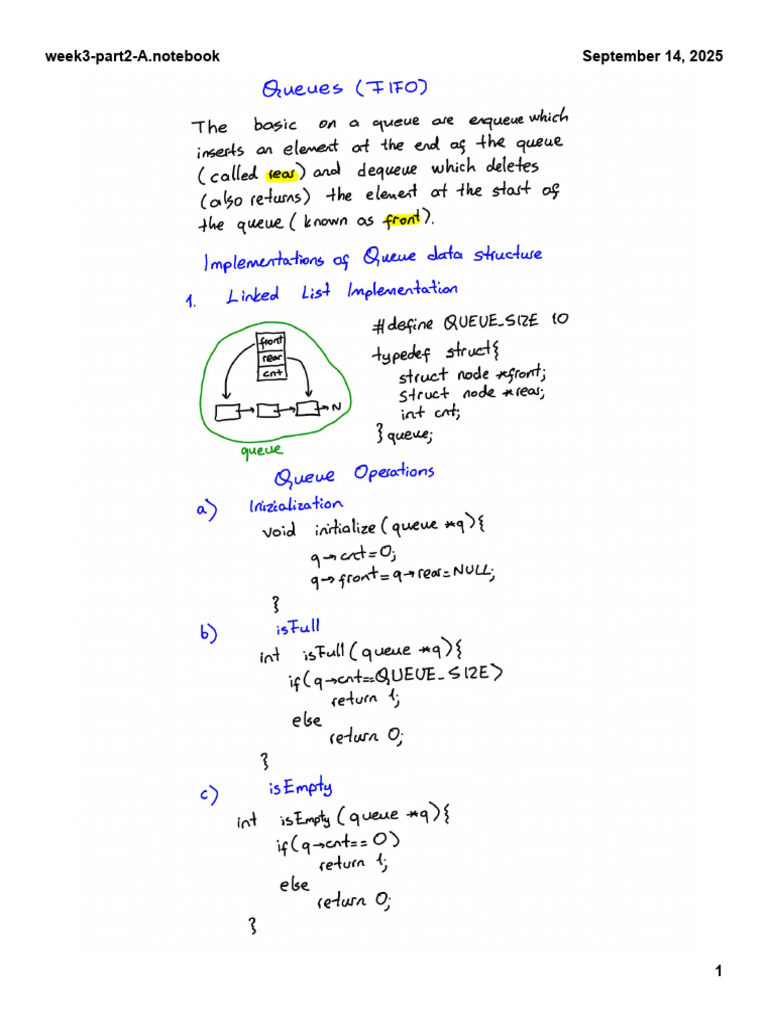 week3-part2-A.notebook
September 14, 2025
Queues (FIFO)
The basic on a queue are enqueue which
inserts an element at the end of the queue
(called rear) and dequeue which deletes
(also returns) the element at the start of
the queue (known as front).
Implementations of Queue data structure
1. Linked List Implementation
front
rear
cnt
N
queue
#define QUEUE_SIZE 10
typedef struct{
struct node *front;
struct node *rear;
int cnt;
} queue;
Queue Operations
a) Inizialization
void initialize(queue *q){
q→cnt=0;
q→front=q→rear=NULL;
}
b) isFull
int isFull(queue *q){
if(q→cnt==QUEUE_SIZE)
return 1;
else
return 0;
}
c) isEmpty
int isEmpty(queue *q){
if(q→cnt==0)
return 1;
else
return 0;
}
1